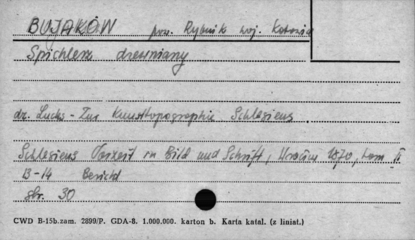 BUJAKÓW pow. Rybnik woj. Katowice
Spichlerz drewniany
dr. Luchs - Zur Kunsttopographie Schlesiens
Schlesiens Vorzeit in Bild und Schrift, Wrocław 1870, tom II
13-14 Bericht
str. 30
CWD B-15b.zam. 2899/P. GDA-8. 1.000.000. karton b. Karta katal. (z liniat.)